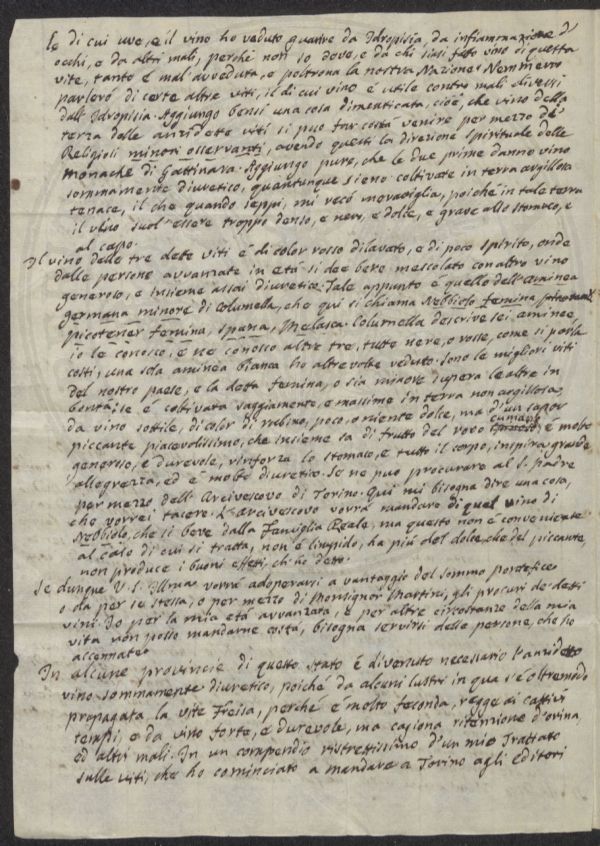 le di cui uve, e il vino ho veduto guarire da Idropisia, da infiammazione d'
occhi, e da altri mali, perchè non so dove, e da chi siasi fatto vino di questa
vite, tanto è mal avveduta, e poltrona la nostra Nazione. Nemmeno
parlerò di certe altre viti, il di cui vino è utile contro mali diversi
dall'Idropisia. Aggiungo bensì una cosa dimenticata, cioè, che vino della
terza delle anzidette viti si può far costà venire per mezzo de'
Religiosi minori osservanti, avendo questi la direzione spirituale delle
monache di Gattinara. Aggiungo pure, che le due prime danno vino
sommamente diuretico, quantunque sieno coltivate in terra argillosa
tenace, il che quando seppi, mi recò meraviglia, poichè in tale terra
il vino suol essere troppo denso, e nero, e dolce, e grave allo stomaco, e
al capo.
Il vino delle tre dette viti è di color rosso dilavato, e di poco spirito, onde
dalle persone avvanzate in età si dee bere mescolato con altro vino
generoso, e insieme assai diuretico. Tale appunto è quello dell'Aminea
germana minore di Columella, che qui si chiama Nebbiolo femina
picotener femina, spana, Melasca. Columella descrive sei aminee
io le conosco, e ne conosco altre tre, tutte nere, o rosse, come si parla
costì, una sola aminea bianca ho altre volte veduto. Sono le migliori viti
del nostro paese, e la detta femina, o sia minore supera le altre in
bontà, se è coltivata saggiamente, e massime in terra non argillosa,
da vino sottile, di color di rubino, poco, o niente dolce, ma d'un sapor
piccante piacevolissimo, che insieme sa di frutto del rovo, è molto
generoso, e durevole, rinforza lo stomaco, e tutto il corpo, inspira grande
allegrezza, ed è molto diuretico. Se ne può procurare al S. Padre
per mezzo dell'Arcivescovo di Torino. Qui mi bisogna dire una cosa,
che vorrei tacere. L'Arcivescovo vorrà mandare di quel vino di
Nebbiolo, che si beve dalla Famiglia Reale, ma questo non è conveniente
al caso di cui si tratta, non è limpido, ha più del dolce, che del piccante,
non produce i buoni effetti, ch'ho detto.
Se dunque V. S. Illma vorrà adoperarsi a vantaggio del sommo pontefice
o da per se stessa, o per mezzo di Monsignor Martini, gli procuri de' detti
vini. Io per la mia età avvanzata, e per altre circostanze della mia
vita non posso mandarne costà, bisogna servirsi delle persone, che ho
accennate.
In alcune provincie di questo stato è divenuto necessario l'anzidetto
vino sommamente diuretico, poichè da alcuni lustri in qua s'è oltremodo
propagata la vite Freisa, perchè è molto feconda, regge ai cattivi
tempi, e da vino forte, e durevole, ma cagiona ritenzione d'orina
ed altri mali. In un compendio ristrettissimo d'un mio Trattato
sulle viti, che ho cominciato a mandare a Torino agli Editori